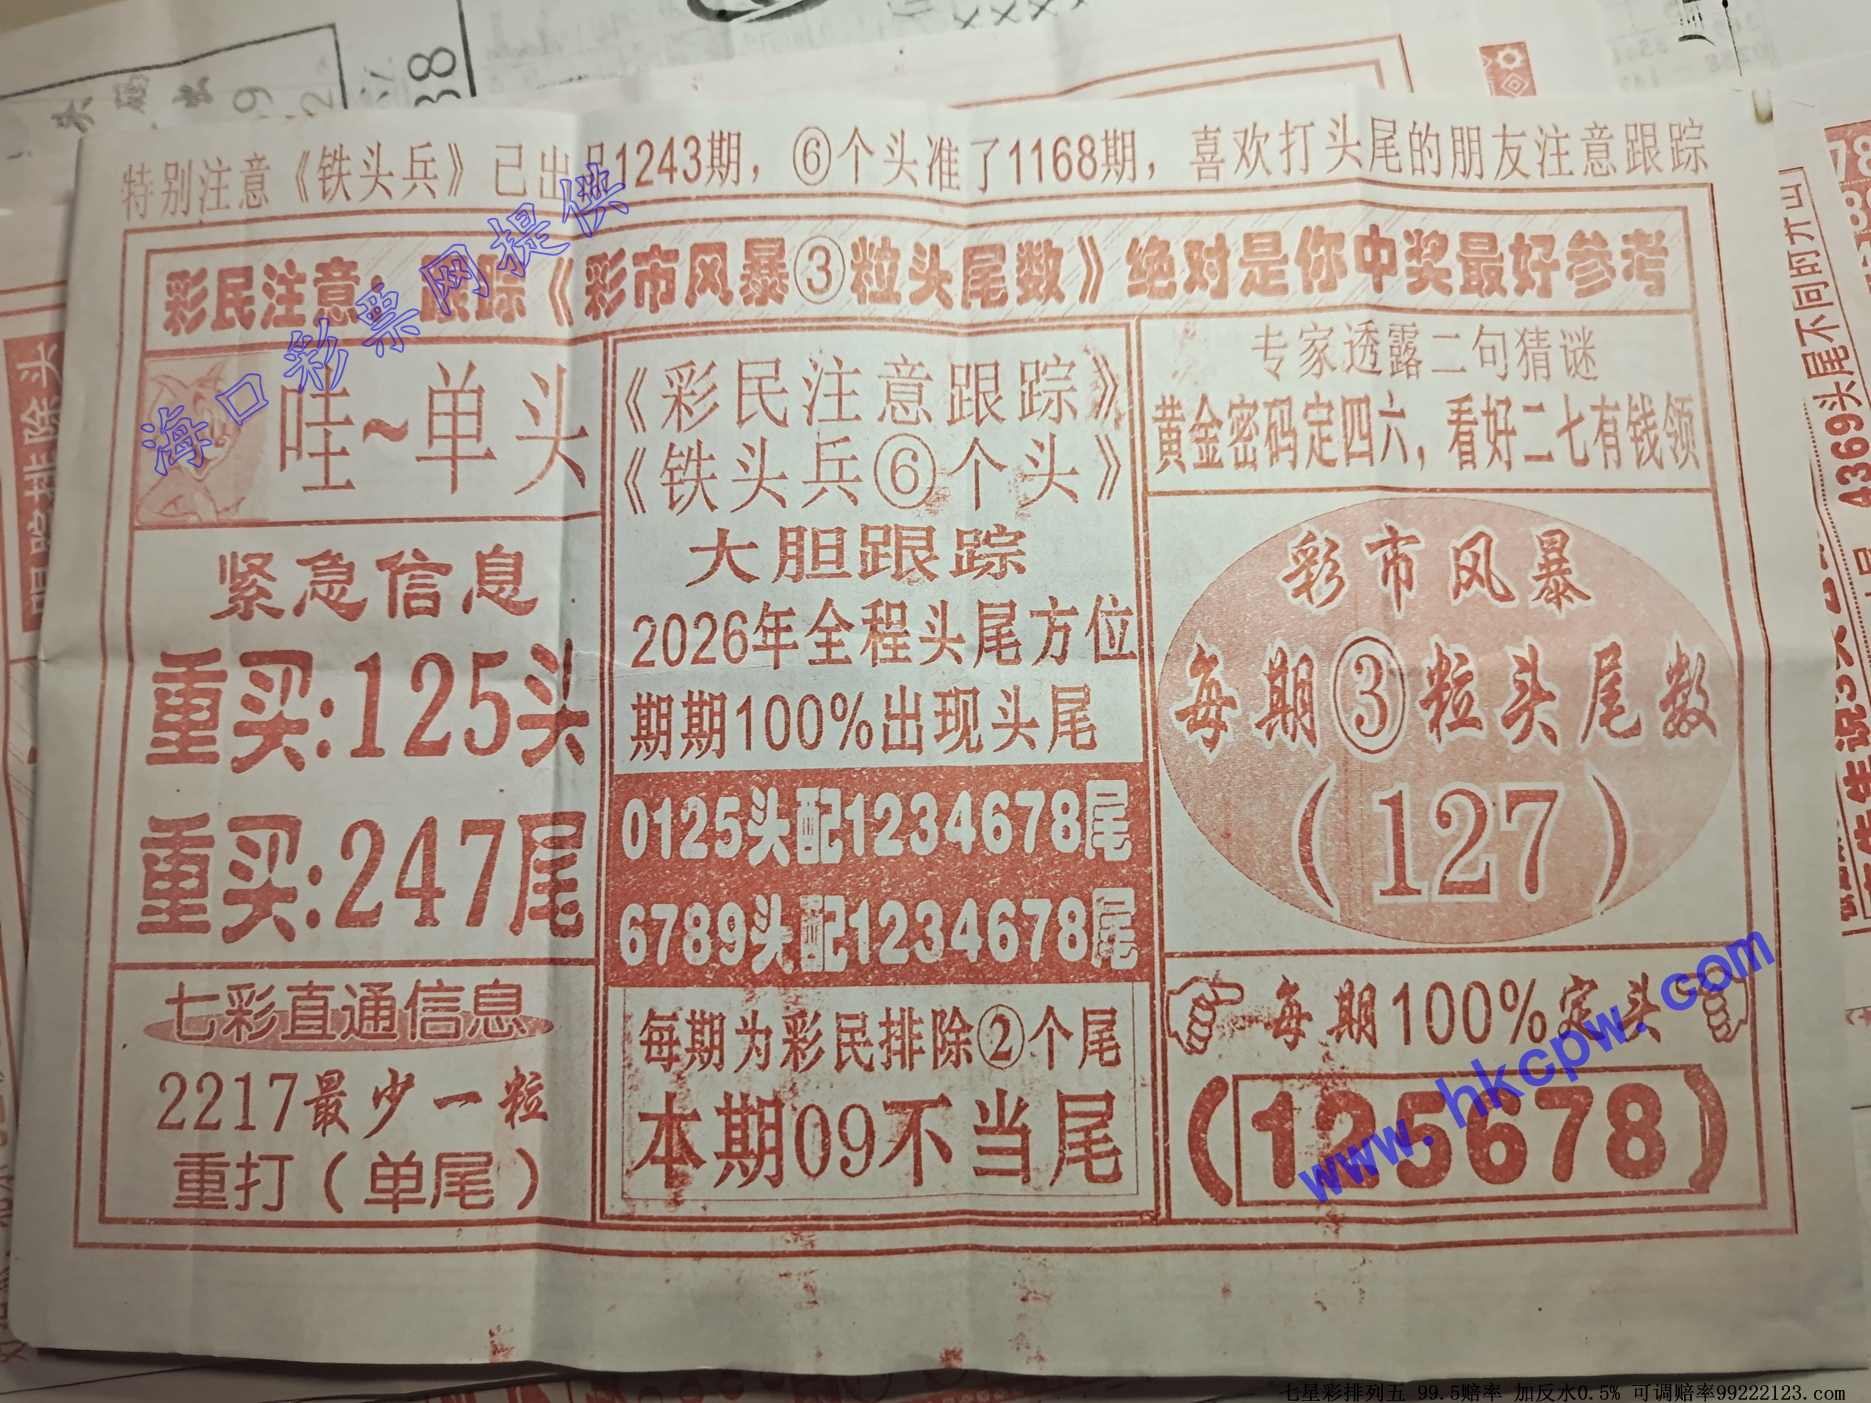 特别注意《铁头兵》已出品1243期，⑥个头准了1168期，喜欢打头尾的朋友注意跟踪
彩民注意：跟踪《彩市风暴③粒头尾数》绝对是你中奖最好参考
哇~单头
紧急信息
重买:125头
重买:247尾
七彩直通信息
2217最少一粒
重打（单尾）
《彩民注意跟踪》
《铁头兵⑥个头》
大胆跟踪
2026年全程头尾方位
期期100%出现头尾
0125头配1234678尾
6789头配1234678尾
每期为彩民排除②个尾
本期09不当尾
专家透露二句猜谜
黄金密码定四六，看好二七有钱领
彩市风暴
每期③粒头尾数
（127）
每期100%定头
（125678）
海口彩票网提供
www.hkcpw.com
4369头尾不同的
38
七星彩排列五 99.5赔率 加反水0.5% 可调赔率99222123.com